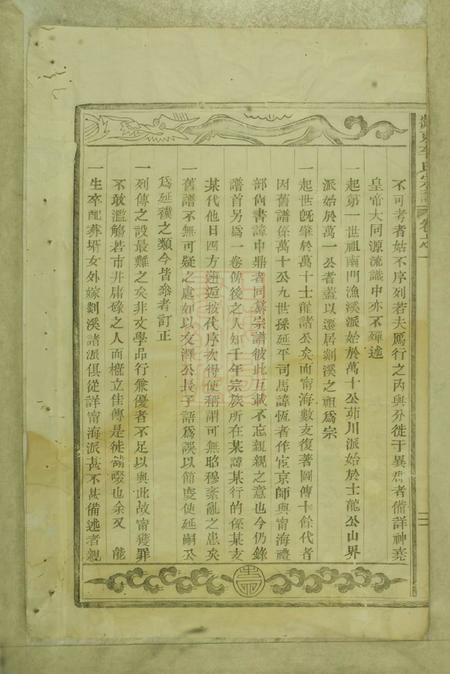 不可考者姑不序列若夫厲行之丙與外徙于異邑者備詳神堯
皇帝大同源流識中亦不殫述
一起第一世祖南門漁溪派始於萬十公茆川派始於士龍公山界
派始於萬一公者蓋以遷居剡溪之祖為宗
一起世旣肇於萬十士龍諸公矣而甯海數支復著圖傳十餘代者
因舊譜係萬十公九世孫延平司馬諱恆者作宦京師與甯海禮
部尚書諱中鼎者同纂宗譜彼此互載不忘親親之意也今仍錄
譜首另為一卷俾後之人知千年宗族所在某諱某行的係某支
某代他日四方邂逅按代序次得使稱謂可無昭穆紊亂之患矣
一舊譜不無可疑之處如以文澤公長子語為誤以簡慶使延嗣又
為延穫之類今皆叅者訂正
一列傳之設最難之矣非文學品行兼優者不足以與此故甯獲罪
不敢濫觴若市井庸碌之人而𢹂立佳傳是徙誚啜也余又 能
一生卒配葬壻女外嫁剡溪諸派俱從詳甯海派甚不甚備述者親